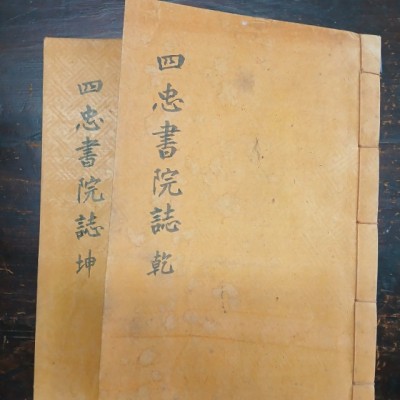 四忠書院誌 乾
四忠書院誌 坤